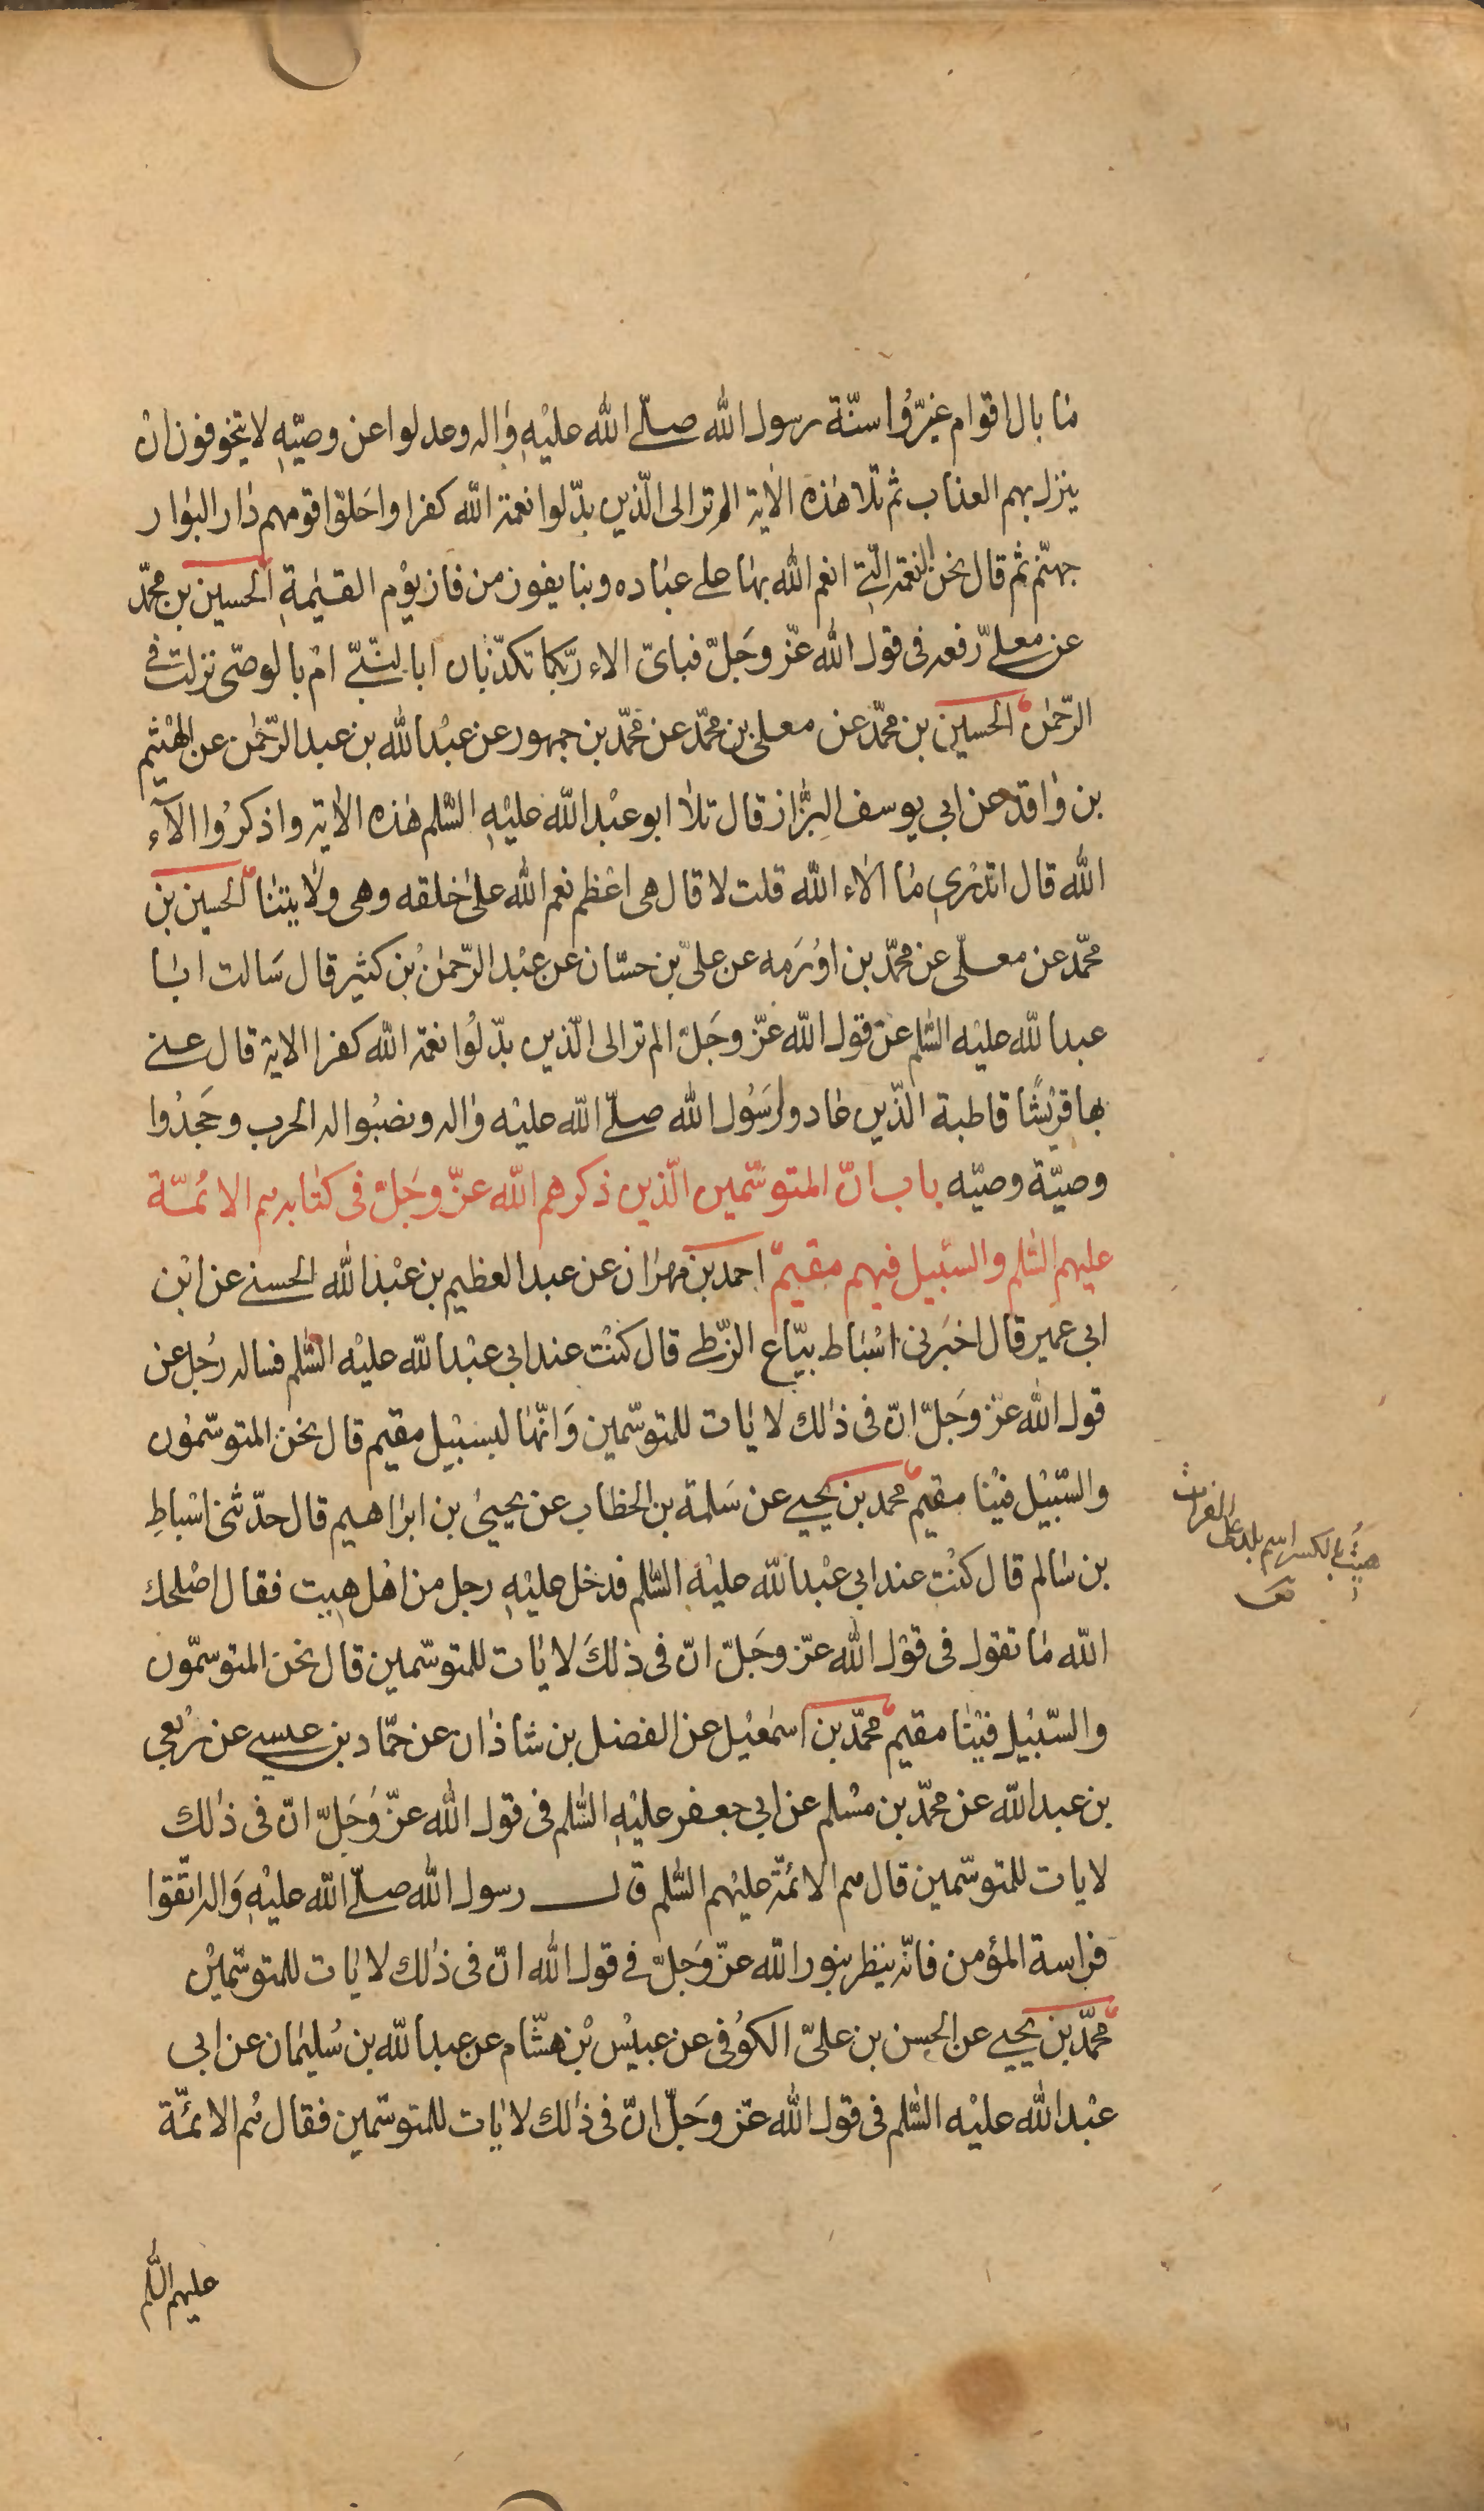 ما بال اقوام غيّروا سنّة رسول الله صلّى الله عليه واله وعدلوا عن وصيّه لا يتخوفون ان
ينزل بهم العذاب ثم تلا هذه الاية الم تر الى الّذين بدّلوا نعمة الله كفرا واحلّوا قومهم دار البوار
جهنّم ثم قال نحن النعمة الّتي انعم الله بها على عباده وبنا يفوز من فاز يوم القيمة الحسين بن محمّد
عن معلّى رفعه فى قول الله عزّ وجلّ فباىّ الاء ربّكما تكذّبان ابا لنّبىّ ام بالوصّى نزلت فى
الرّحمن الحسين بن محمّد عن معلى بن محمّد عن محمّد بن جمهور عن عبد الله بن عبد الرّحمن عن الهيثم
بن واقد عن ابي يوسف البزّاز قال تلا ابو عبد الله عليه السّلم هذه الاية واذكروا الآء
الله قال اتدري ما الاء الله قلت لا قال هى اعظم نعم الله على خلقه وهى ولايتنا الحسين بن
محمّد عن معلّى عن محمّد بن اورمه عن علىّ بن حسّان عن عبد الرّحمن بن كثير قال سالت ابا
عبد الله عليه السّلم عن قول الله عزّ وجلّ الم تر الى الّذين بدّلوا نعمة الله كفرا الاية قال عنى
بها قريشًا قاطبة الّذين عادوا رسول الله صلّى الله عليه واله ونصبوا له الحرب وجحدوا
وصيّة وصيّه باب انّ المتوسّمين الّذين ذكرهم الله عزّ وجلّ فى كتابه هم الائمّة
عليهم السّلم والسّبيل فيهم مقيم احمد بن مهران عن عبد العظيم بن عبد الله الحسنى عن ابن
ابي عمير قال اخبرنى اسباط بيّاع الزّطى قال كنت عند ابي عبد الله عليه السّلم فساله رجل عن
قول الله عزّ وجلّ انّ فى ذلك لايات للمتوسّمين وانّها لبسبيل مقيم قال نحن المتوسّمون
والسّبيل فينا مقيم محمد بن يحيى عن سلمة بن الخطاب عن يحيى بن ابراهيم قال حدّثنى اسباط
بن سالم قال كنت عند ابي عبد الله عليه السّلم فدخل عليه رجل من اهل هيت فقال اصلحك
الله ما تقول فى قول الله عزّ وجلّ انّ فى ذلك لايات للمتوسّمين قال نحن المتوسّمون
والسّبيل فينا مقيم محمّد بن اسمعيل عن الفضل بن شاذان عن حمّاد بن عيسى عن ربعي
بن عبد الله عن محمّد بن مسلم عن ابي جعفر عليه السّلم فى قول الله عزّ وجلّ انّ فى ذلك
لايات للمتوسّمين قال هم الائمّة عليهم السّلم قال رسول الله صلّى الله عليه واله اتّقوا
فراسة المؤمن فانّه ينظر بنور الله عزّ وجلّ فى قول الله انّ فى ذلك لايات للمتوسّمين
محمّد بن يحيى عن الحسن بن علىّ الكوفى عن عبيس بن هشّام عن عبد الله بن سليمان عن ابي
عبد الله عليه السّلم فى قول الله عزّ وجلّ انّ فى ذلك لايات للمتوسّمين فقال هم الائمّة
عليهم السّلم
هيت بالكسر اسم بلد على الفرات